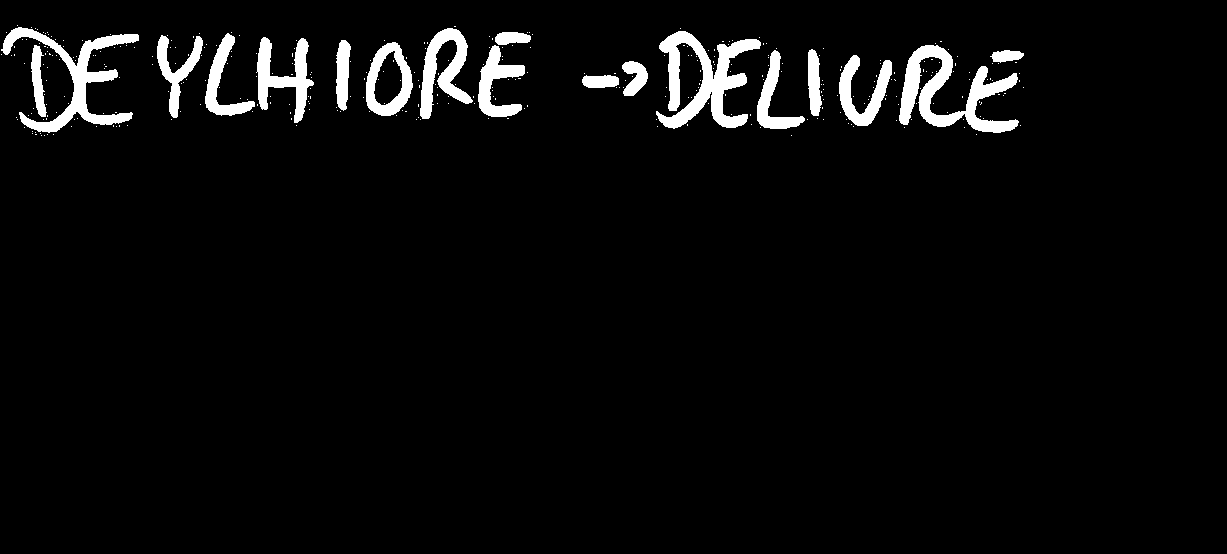 DEYLHIORE → DELIURE